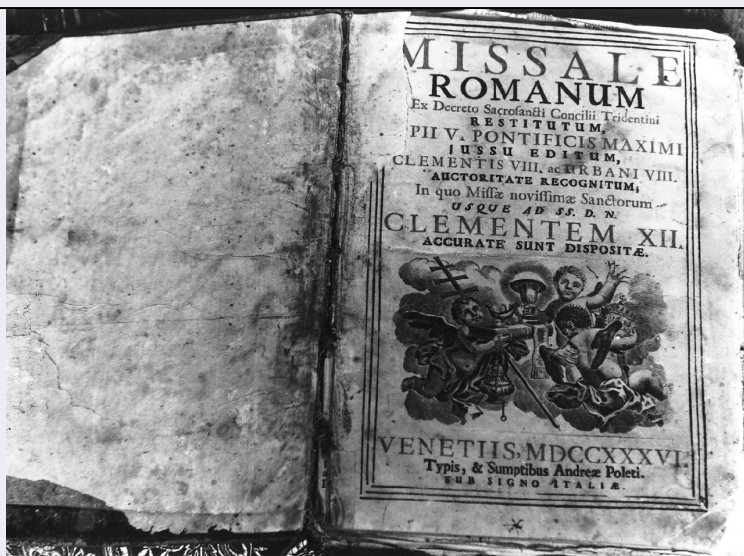 MISSALE
ROMANUM
Ex Decreto Sacroſancti Concilii Tridentini
RESTITUTUM,
PII V. PONTIFICIS MAXIMI
JUSSU EDITUM,
CLEMENTIS VIII. ac URBANI VIII.
AUCTORITATE RECOGNITUM;
In quo Miſſæ noviſſimæ Sanctorum
USQUE AD SS. D. N.
CLEMENTEM XII.
ACCURATE SUNT DISPOSITÆ.
VENETIIS, MDCCXXXVI.
Typis, & Sumptibus Andreæ Poleti.
SUB SIGNO ITALIÆ.